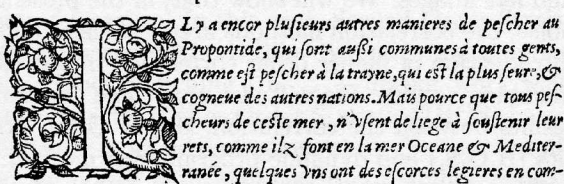 IL y a encor plusieurs autres manieres de pescher au
Propontide, qui sont aussi communes à toutes gents,
comme est pescher à la trayne, qui est la plus seure, &
cogneue des autres nations. Mais pource que tous pes-
cheurs de ceste mer, n'vsent de liege à soustenir leur
rets, comme ilz font en la mer Oceane & Mediter-
ranée, quelques vns ont des escorces legieres en com-